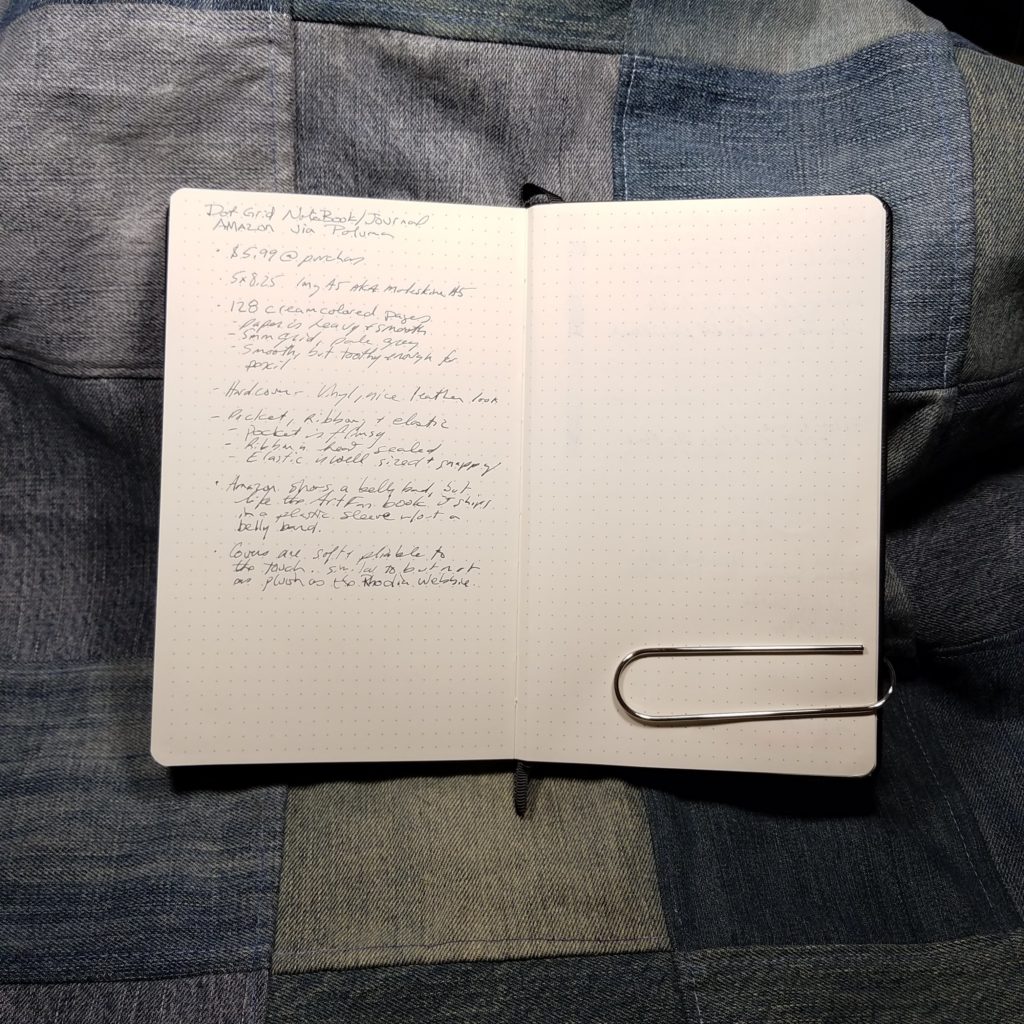 Dot Grid NoteBook/Journal
AMAZON via Poluma
• $5.99 @ purchas
• 5x8.25 AKA Moleskine A5
• 128 cream colored pages
- Paper is heavy + smooth
- 5mm grid, pale grey
- Smooth, but toothy enough for
pencil
- Hardcover - Vinyl, nice leather look
- Pocket, Ribbon, + elastic
- pocket is flimsy
- Ribbon heat sealed
- Elastic is well sized + snappy
• Amazon shows a belly band, but
like the book it ships
in a plastic sleeve w/out a
belly band.
• Covers are soft + pliable to
the touch. similar to but not
as plush as the Rhodia Webbie.